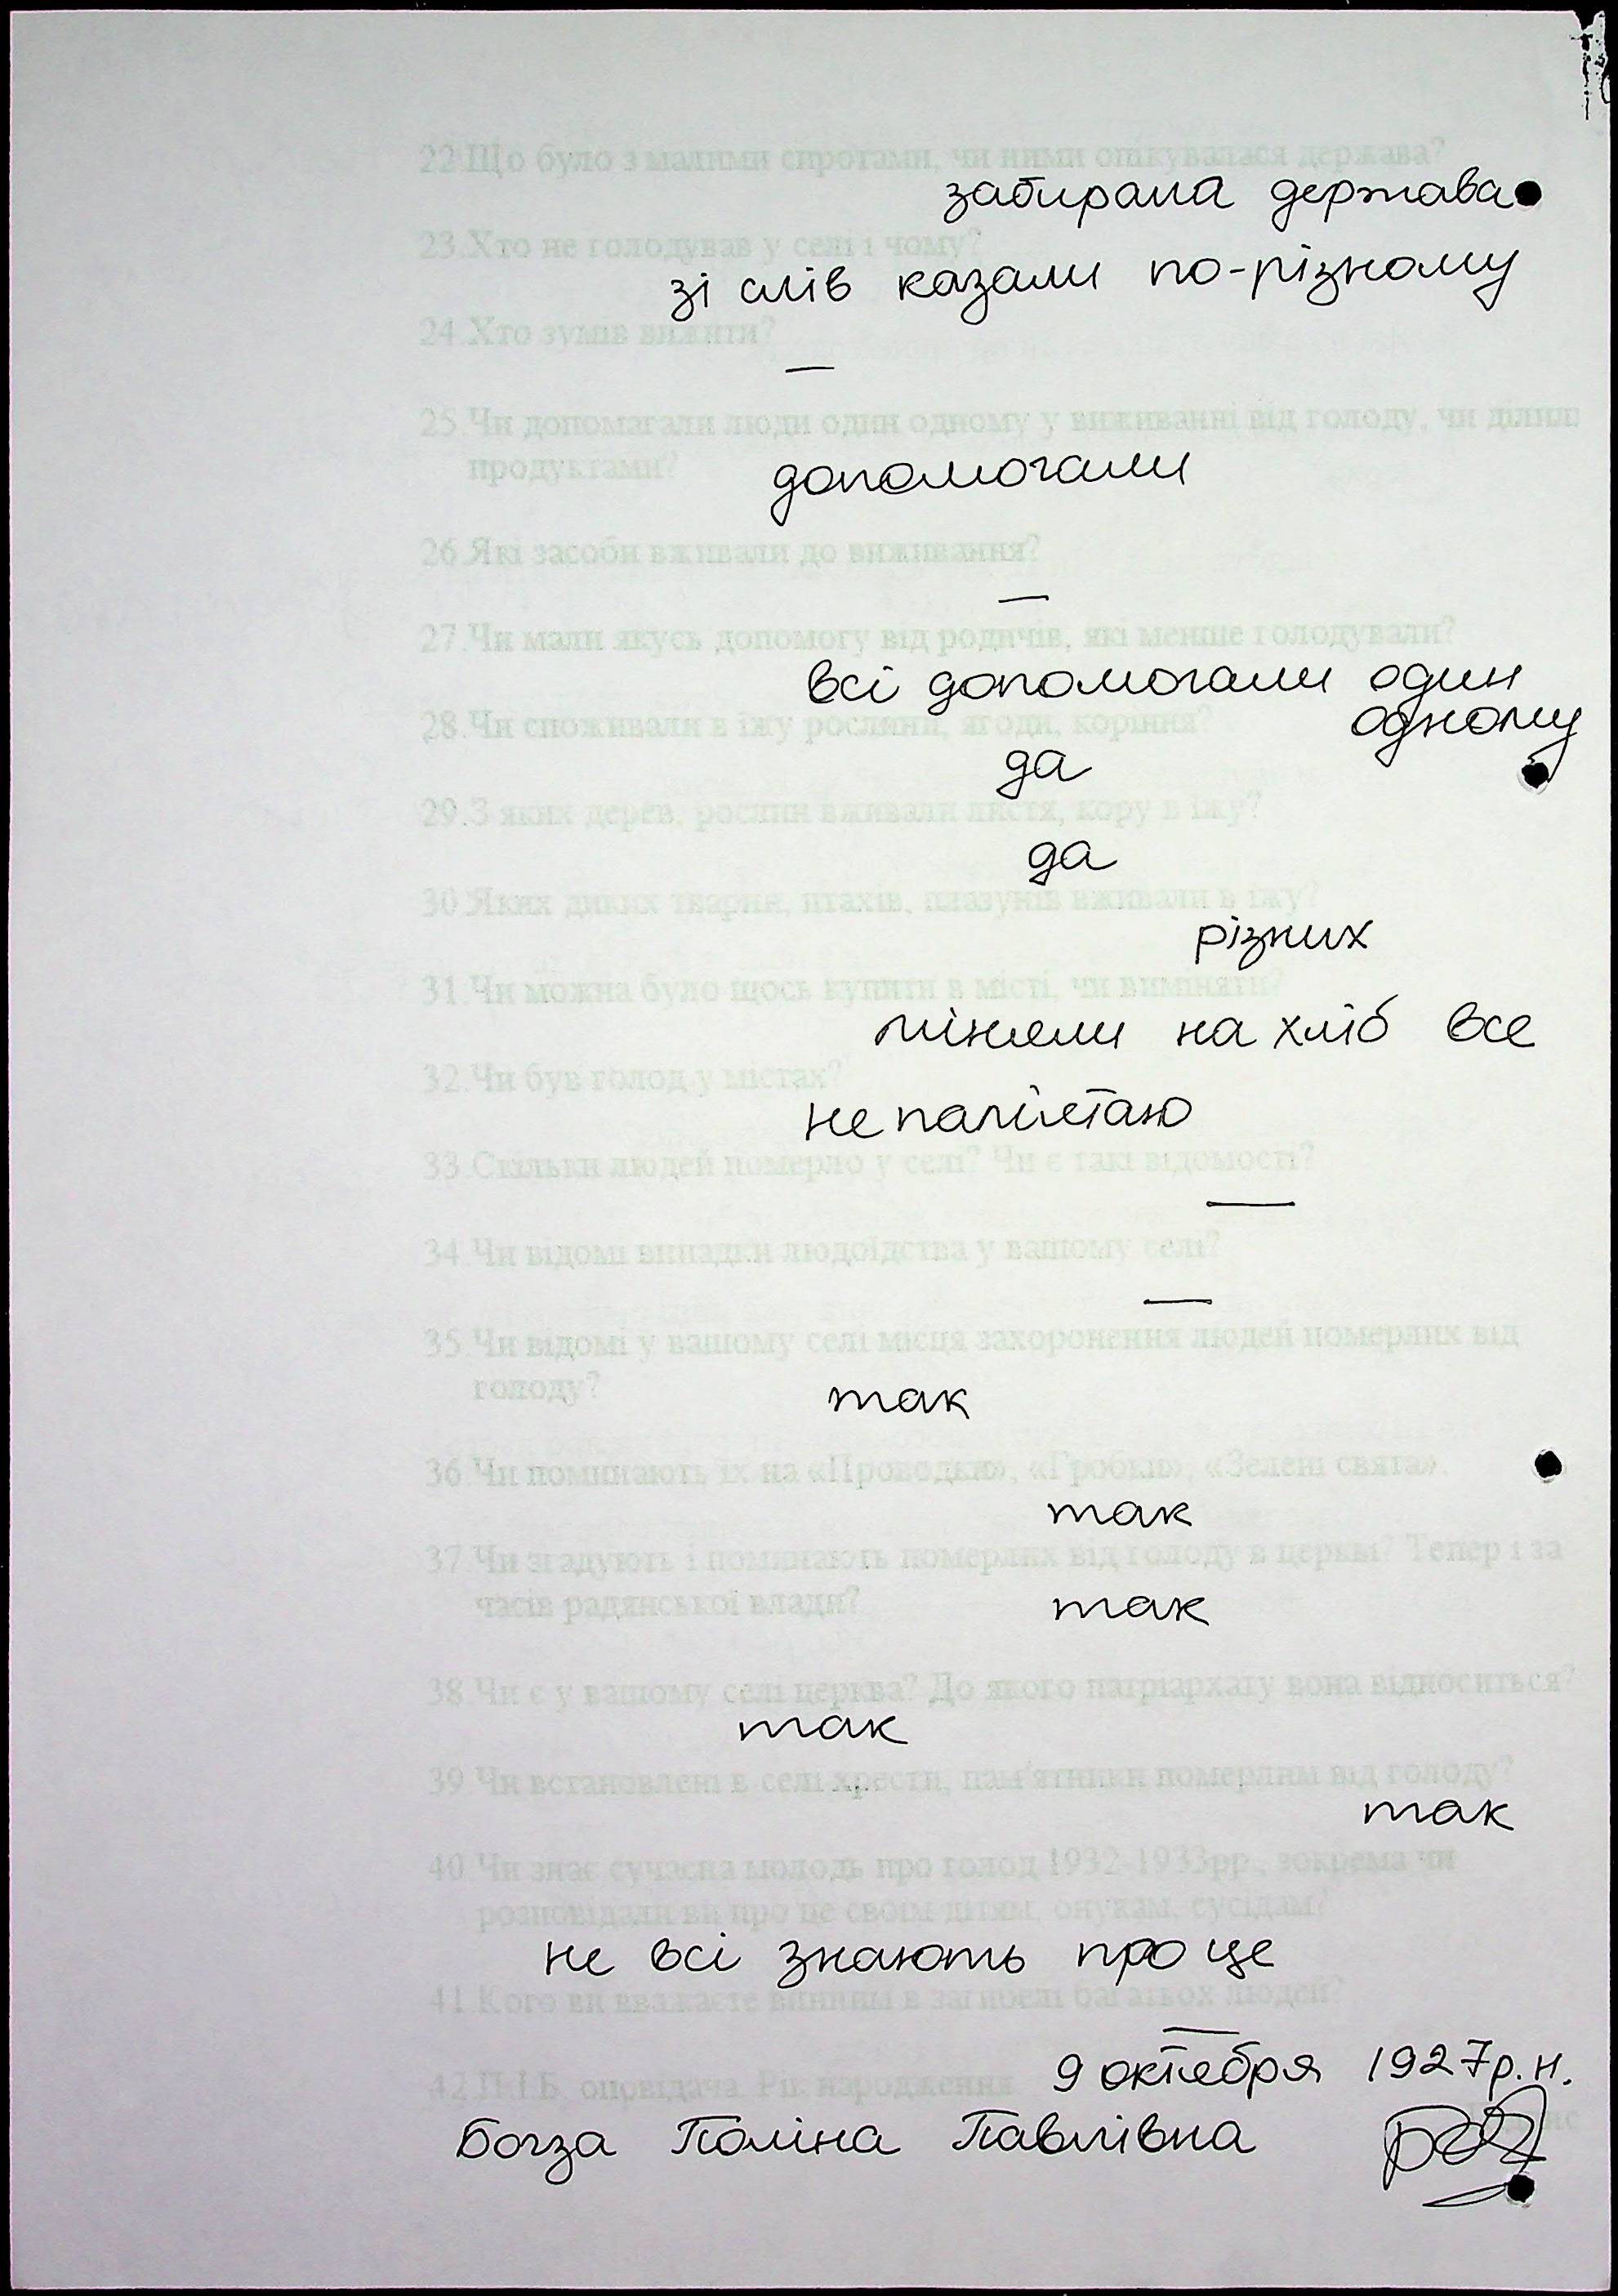 22.Що було з малими сиротами, чи ними опікувалася держава?
забирала держава
23.Хто не голодував у селі і чому?
зі слів казали по-різному
24.Хто зумів вижити?
—
25.Чи допомагали люди один одному у виживанні від голоду, чи ділили
продуктами?
допомогали
26.Які засоби вживали до виживання?
—
27.Чи мали якусь допомогу від родичів, які менше голодували?
всі допомогали один
одному
28.Чи споживали в їжу рослини, ягоди, коріння?
да
29.З яких дерев, рослин вживали листя, кору в їжу?
да
30.Яких диких тварин, птахів, плазунів вживали в їжу?
різних
31.Чи можна було щось купити в місті, чи виміняти?
міняли на хліб все
32.Чи був голод у містах?
не памілтаю
33.Скільки людей померло у селі? Чи є такі відомості?
—
34.Чи відомі випадки людоїдства у вашому селі?
—
35.Чи відомі у вашому селі місця захоронення людей померлих від
голоду?
так
36.Чи поминають їх на «Проводки», «Гробки», «Зелені свята».
так
37.Чи згадують і поминають померлих від голоду в церкві? Тепер і за
часів радянської влади?
так
38.Чи є у вашому селі церква? До якого патріархату вона відноситься?
так
39.Чи встановлені в селі хрести, пам'ятники померлим від голоду?
так
40.Чи знає сучасна молодь про голод 1932-1933рр., зокрема чи
розповідали ви про це своїм дітям, онукам, сусідам?
не всі знають про це
41.Кого ви вважаєте винним в загибелі багатьох людей?
—
42.П.І.Б. оповідача. Рік народження
9 октября 1927р.н.
Богза Поліна Павлівна